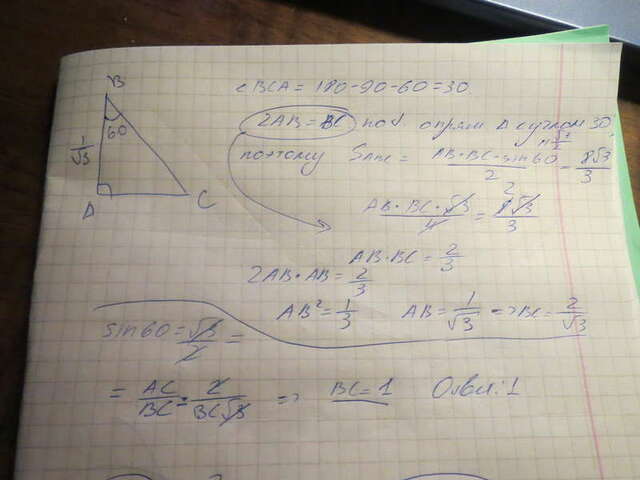 B
60
1/√3
A
C
∠BCA = 180-90-60=30
2AB = BC по прям Δ с углом 30,
поэтому S_ABC = AB·BC·sin60/2 = 8√3/3
AB·BC·√3/4 = √3/3
AB·BC = 2/3
2AB·AB = 2/3
AB² = 1/3 AB = 1/√3 => BC = 2/√3
sin60 = √3/2 =
= AC/BC = 2/BC√3 => BC = 1 Ответ: 1